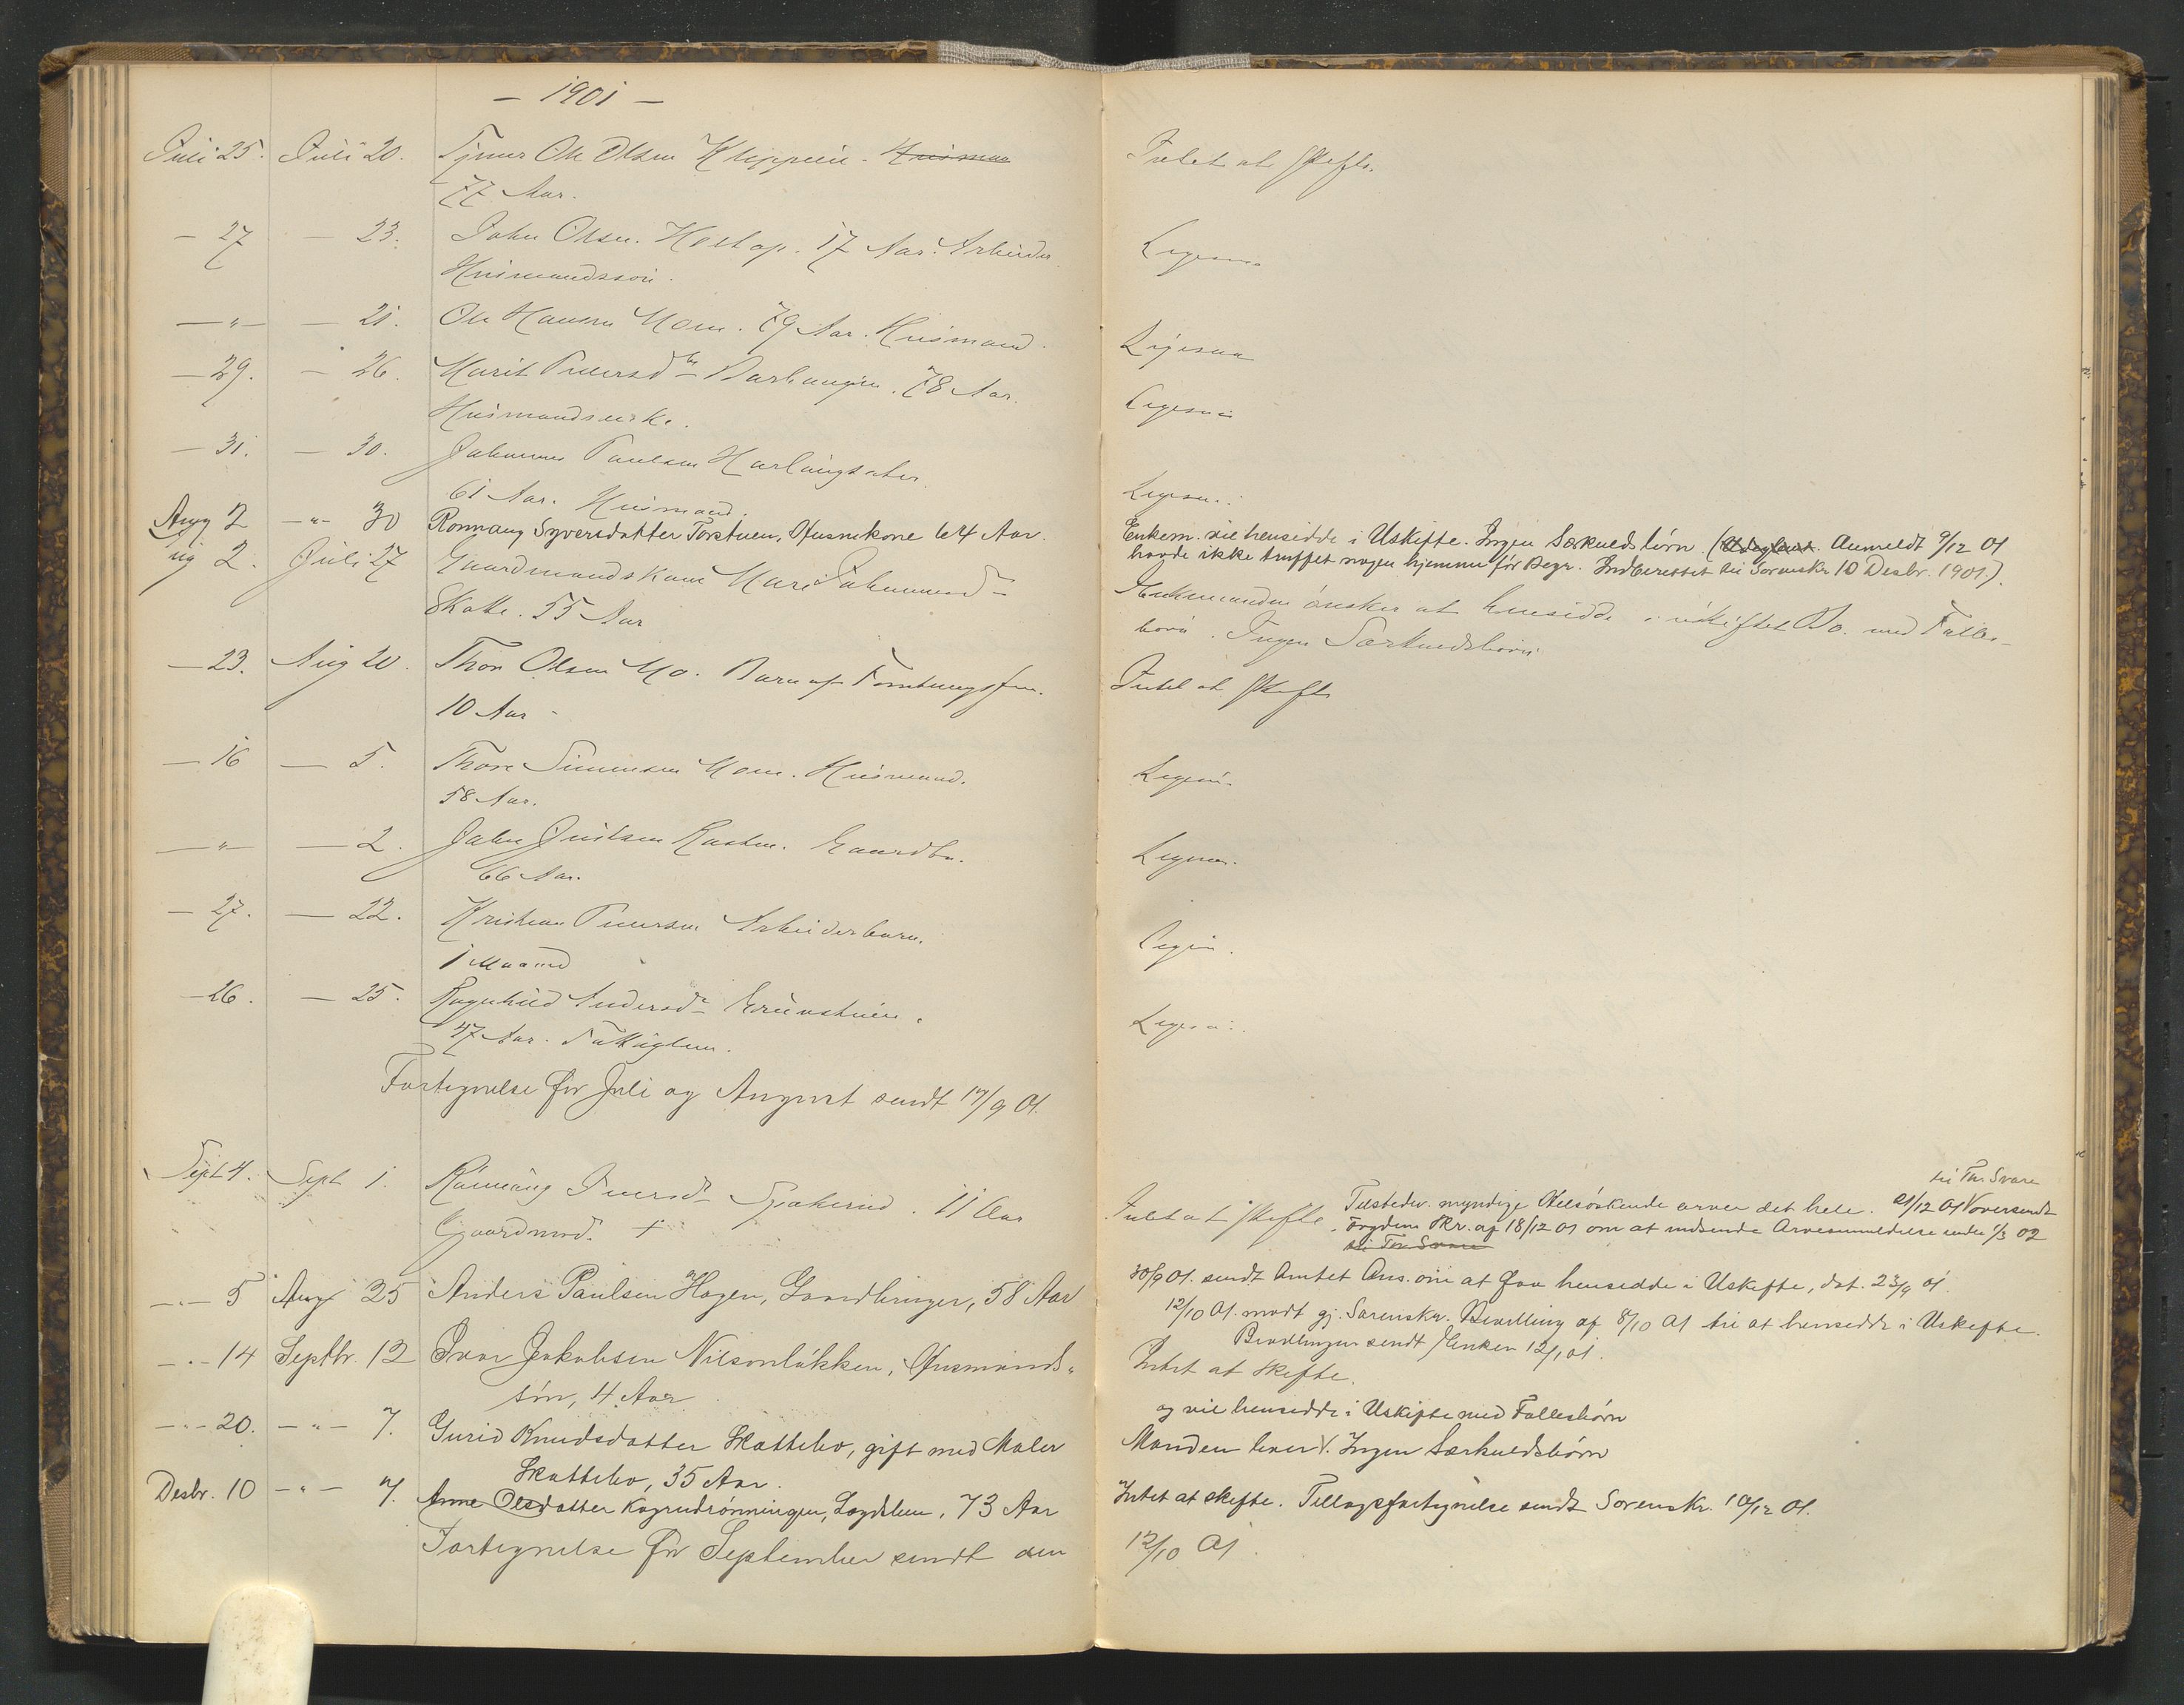 - 1901 -
Juli 25. Juli 20. Ole Olsen Husmann Intet at skifte.
77 Aar.
- 27 - 23. John Olsen. 17 Aar. Arbeider Ligesaa
Husmandssøn.
-"- - 21. Ole Hansen Moen. 79 Aar. Husmand. Ligesaa
- 29. - 26. Marit Iversdtr 78 Aar. Ligesaa
Husmandsenke.
- 31. - 30. Johannes Paulsen
61 Aar. Husmand. Ligesaa.
Aug 2 -"- 30 Ronnaug Syversdatter Torstuen, Husmkone 64 Aar. Enkem. vil hensidde i Uskifte. Ingen Særkuldsbörn. ( Anmeldt 9/12 01
havde ikke truffet nogen hjemme før Begr. Indberettet til Sorenskr 10 Desbr. 1901.).
Aug 2. Juli 27 Gaardmandskone Mari Skatte. 55 Aar
Enkemanden ønsker at hensidde i uskiftet Bo. med Fælles-
börn. Ingen Særkuldsbörn.
- 23. Aug 20. Thor Olsen Mo. Barn af Intet at skifte
10 Aar -
- 16 - 5. Thore Simensen Moen. Husmand. Ligesaa
58 Aar.
-"- - 2. John Gaardbr. Ligesaa.
66 Aar.
- 27. - 22. Kristian Iversen Arbeiderbarn. Ligesaa.
1 Maaned
- 26. - 25. Ragnhild Andersdr Ligesaa.
47 Aar. Fattiglem.
Fortegnelse for Juli og August sendt 17/9 01.
Sept 4. Sept 1. Rønnaug Iversdr 11 Aar
Gaardmd. +
til Thr. Svare
Intet at skifte. Tilstedev. myndige Helsöskende arver det hele. 21/12 01 oversendt
Fogdens Skr. af 18/12 01 om at indsende Arveanmeldelse inden 1/3 02
til Thr. Svare
-"- 5 Aug 25 Anders Paulsen Hagen, Gaardbruger, 58 Aar 30/9 01. sendt Amtet Ans. om at faa hensidde i Uskifte, dat. 23/9 01.
12/10 01. modt gj. Sorenskr. Bevilling af 8/10 01 til at hensidde i Uskifte.
Bevillingen sendt Enken 12/ 01.
-"- 14 Septbr. 12 Ivar Jakobsen Nilsonløkken, Husmands- Intet at skifte.
søn, 4 Aar
og vil hensidde i Uskifte med Fællesbørn
-"- 20. -"- 7. Gurid Knudsdatter Skattebo, gift med Maler Manden lever. Ingen Særkuldsbørn
Skattebo, 35 Aar.
Desbr. 10 -"- 7. Anne Olsdatter Lægdslem, 73 Aar Intet at skifte. Tillægsfortegnelse sendt Sorenskr. 10/12 01.
Fortegnelse for September sendt den 12/10 01.